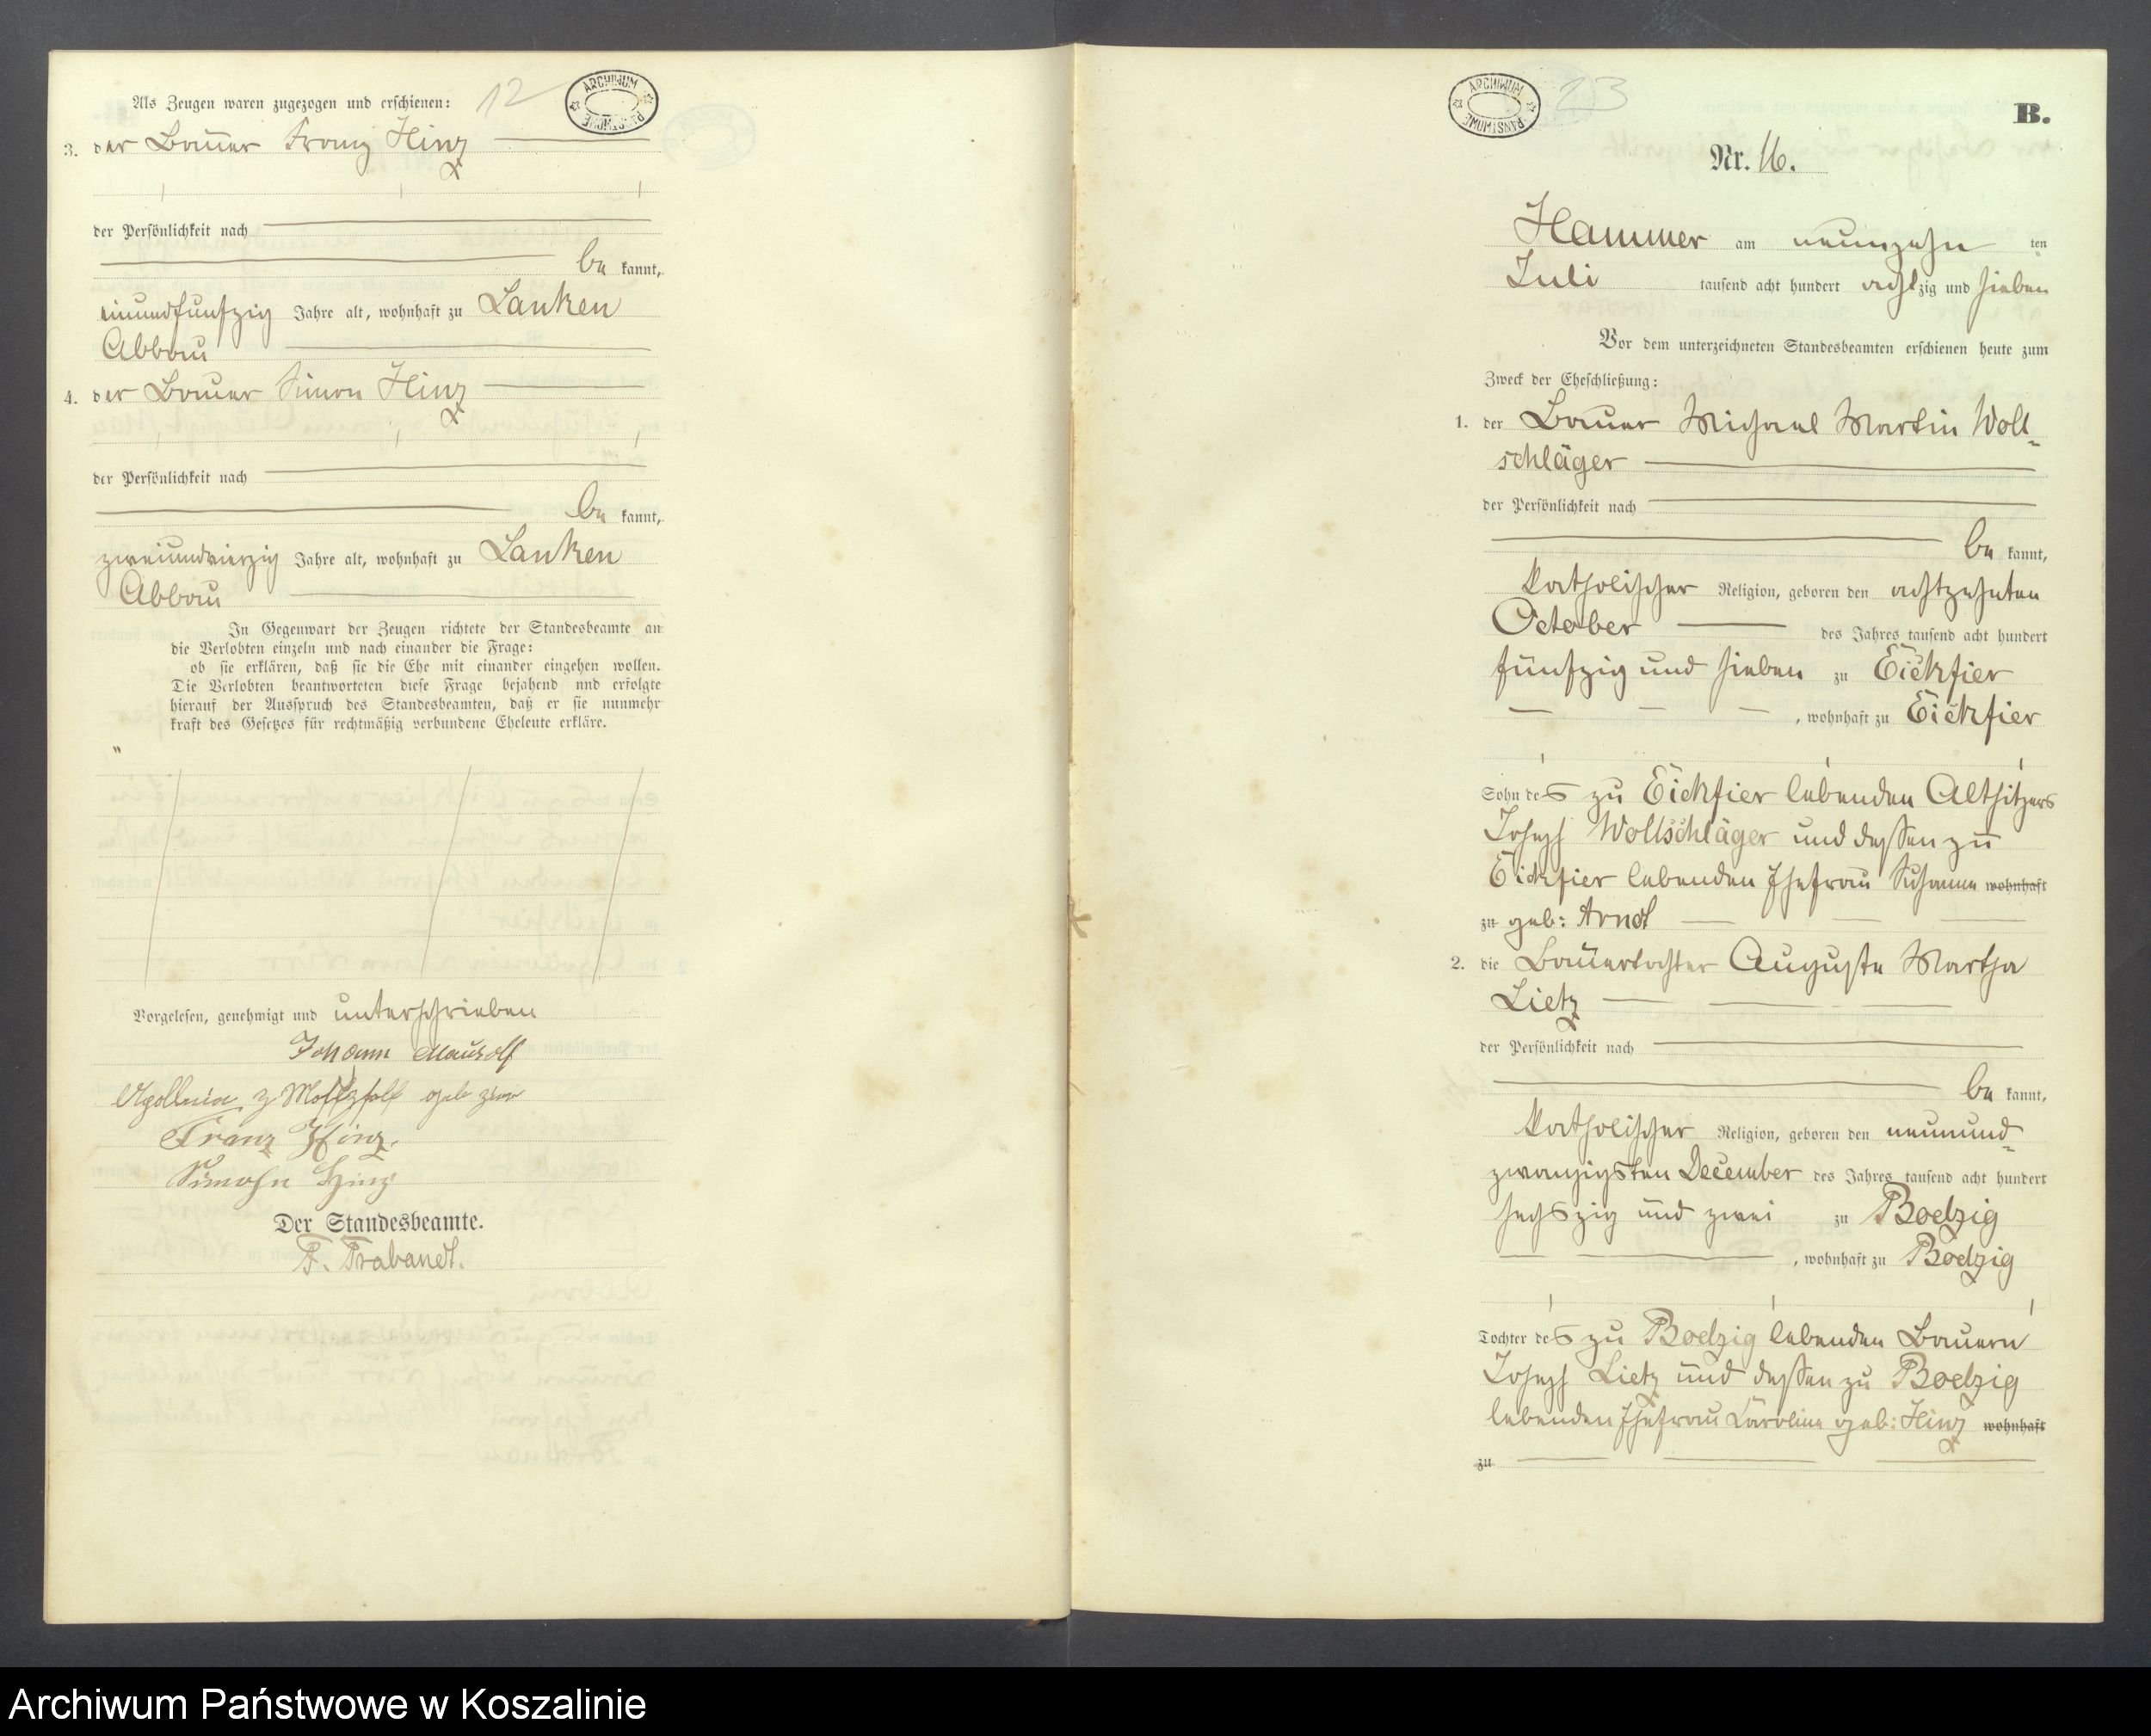 12
ARCHIWUM PAŃSTWOWE
Als Zeugen waren zugezogen und erschienen:
3. der Bauer Franz Hinz
der Persönlichkeit nach
be kannt,
einundfunfzig Jahre alt, wohnhaft zu Lanken
Abbau
4. der Bauer Simon Hinz
der Persönlichkeit nach
be kannt,
zweiundvierzig Jahre alt, wohnhaft zu Lanken
Abbau
In Gegenwart der Zeugen richtete der Standesbeamte an
die Verlobten einzeln und nach einander die Frage:
ob sie erklären, daß sie die Ehe mit einander eingehen wollen.
Die Verlobten beantworteten diese Frage bejahend und erfolgte
hierauf der Ausspruch des Standesbeamten, daß er sie nunmehr
kraft des Gesetzes für rechtmäßig verbundene Eheleute erkläre.
Vorgelesen, genehmigt und unterschrieben
Johann Mausolf
geb
Franz Hinz.
Simohn Hinz
Der Standesbeamte.
F. Brabandt.
ARCHIWUM PAŃSTWOWE
13
B.
Nr. 16.
Hammer am neunzehn ten
Juli tausend acht hundert achtzig und sieben
Vor dem unterzeichneten Standesbeamten erschienen heute zum
Zweck der Eheschließung:
1. der Bauer Michael Martin Woll-
schläger
der Persönlichkeit nach
be kannt,
katholischer Religion, geboren den achtzehnten
October des Jahres tausend acht hundert
fünfzig und sieben zu Eickfier
, wohnhaft zu Eickfier
Sohn des zu Eickfier lebenden Altsitzers
Joseph Wollschläger und dessen zu
Eickfier lebenden Ehefrau Susanna wohnhaft
zu geb: Arndt
2. die Bauertochter Auguste Martha
Lietz
der Persönlichkeit nach
be kannt,
katholischer Religion, geboren den neunund-
zwanzigsten December des Jahres tausend acht hundert
sechszig und zwei zu Boetzig
, wohnhaft zu Boetzig
Tochter des zu Boetzig lebenden Bauern
Joseph Lietz und dessen zu Boetzig
lebenden Ehefrau Caroline geb: Hinz wohnhaft
zu
Archiwum Państwowe w Koszalinie